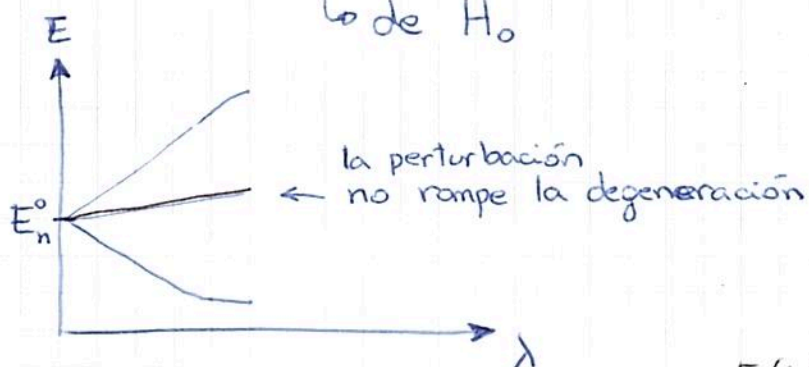 ↳ de H₀
E
la perturbación
← no rompe la degeneración
Eₙ⁰
λ